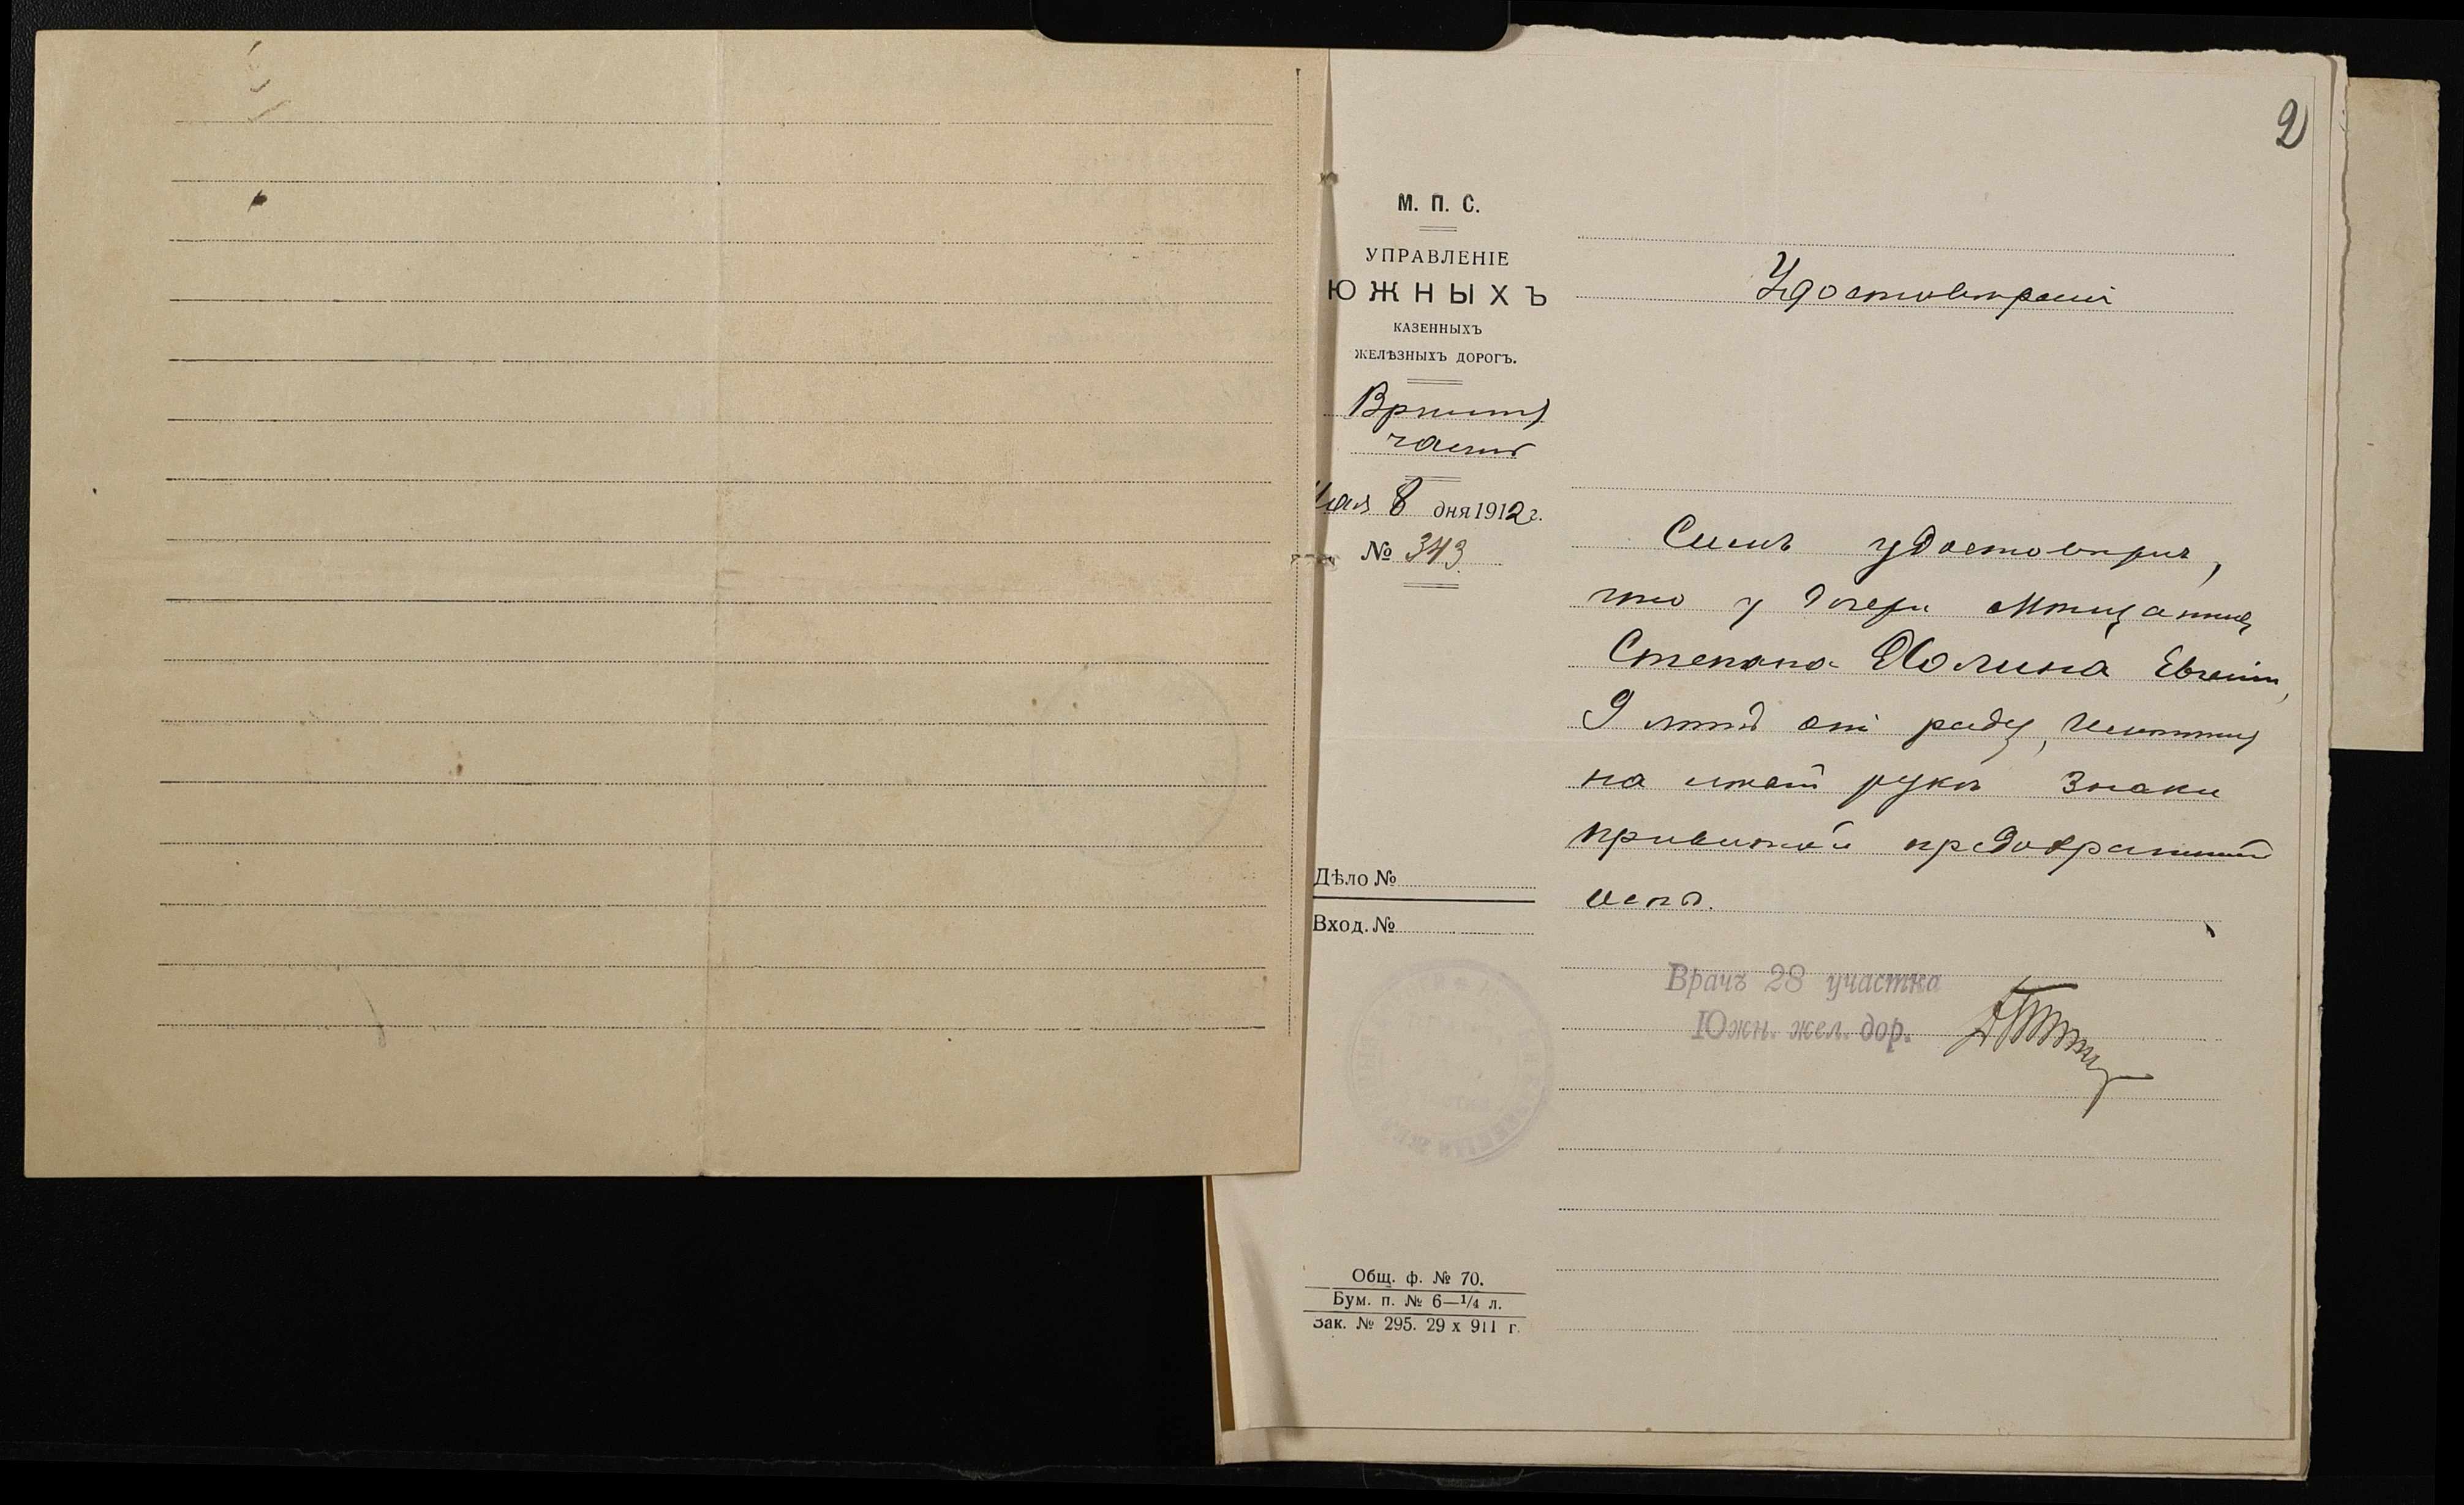 2
М. П. С.
УПРАВЛЕНІЕ
ЮЖНЫХЪ
КАЗЕННЫХЪ
ЖЕЛѢЗНЫХЪ ДОРОГЪ.
Врачебн
часть
Мая 8 дня 1912 г.
№ 343
Удостовѣреніе
Симъ удостовѣряю,
что у дочери мѣщанина
Степана Холина Евгеніи,
9 лѣтъ отъ роду, имѣются
на лѣвой рукѣ знаки
привитой предохранит
оспы.
Дѣло №
Вход. №
Врачъ 28 участка
Южн. жел. дор.
Общ. ф. № 70.
Бум. п. № 6—1/4 л.
Зак. № 295. 29 x 911 г.